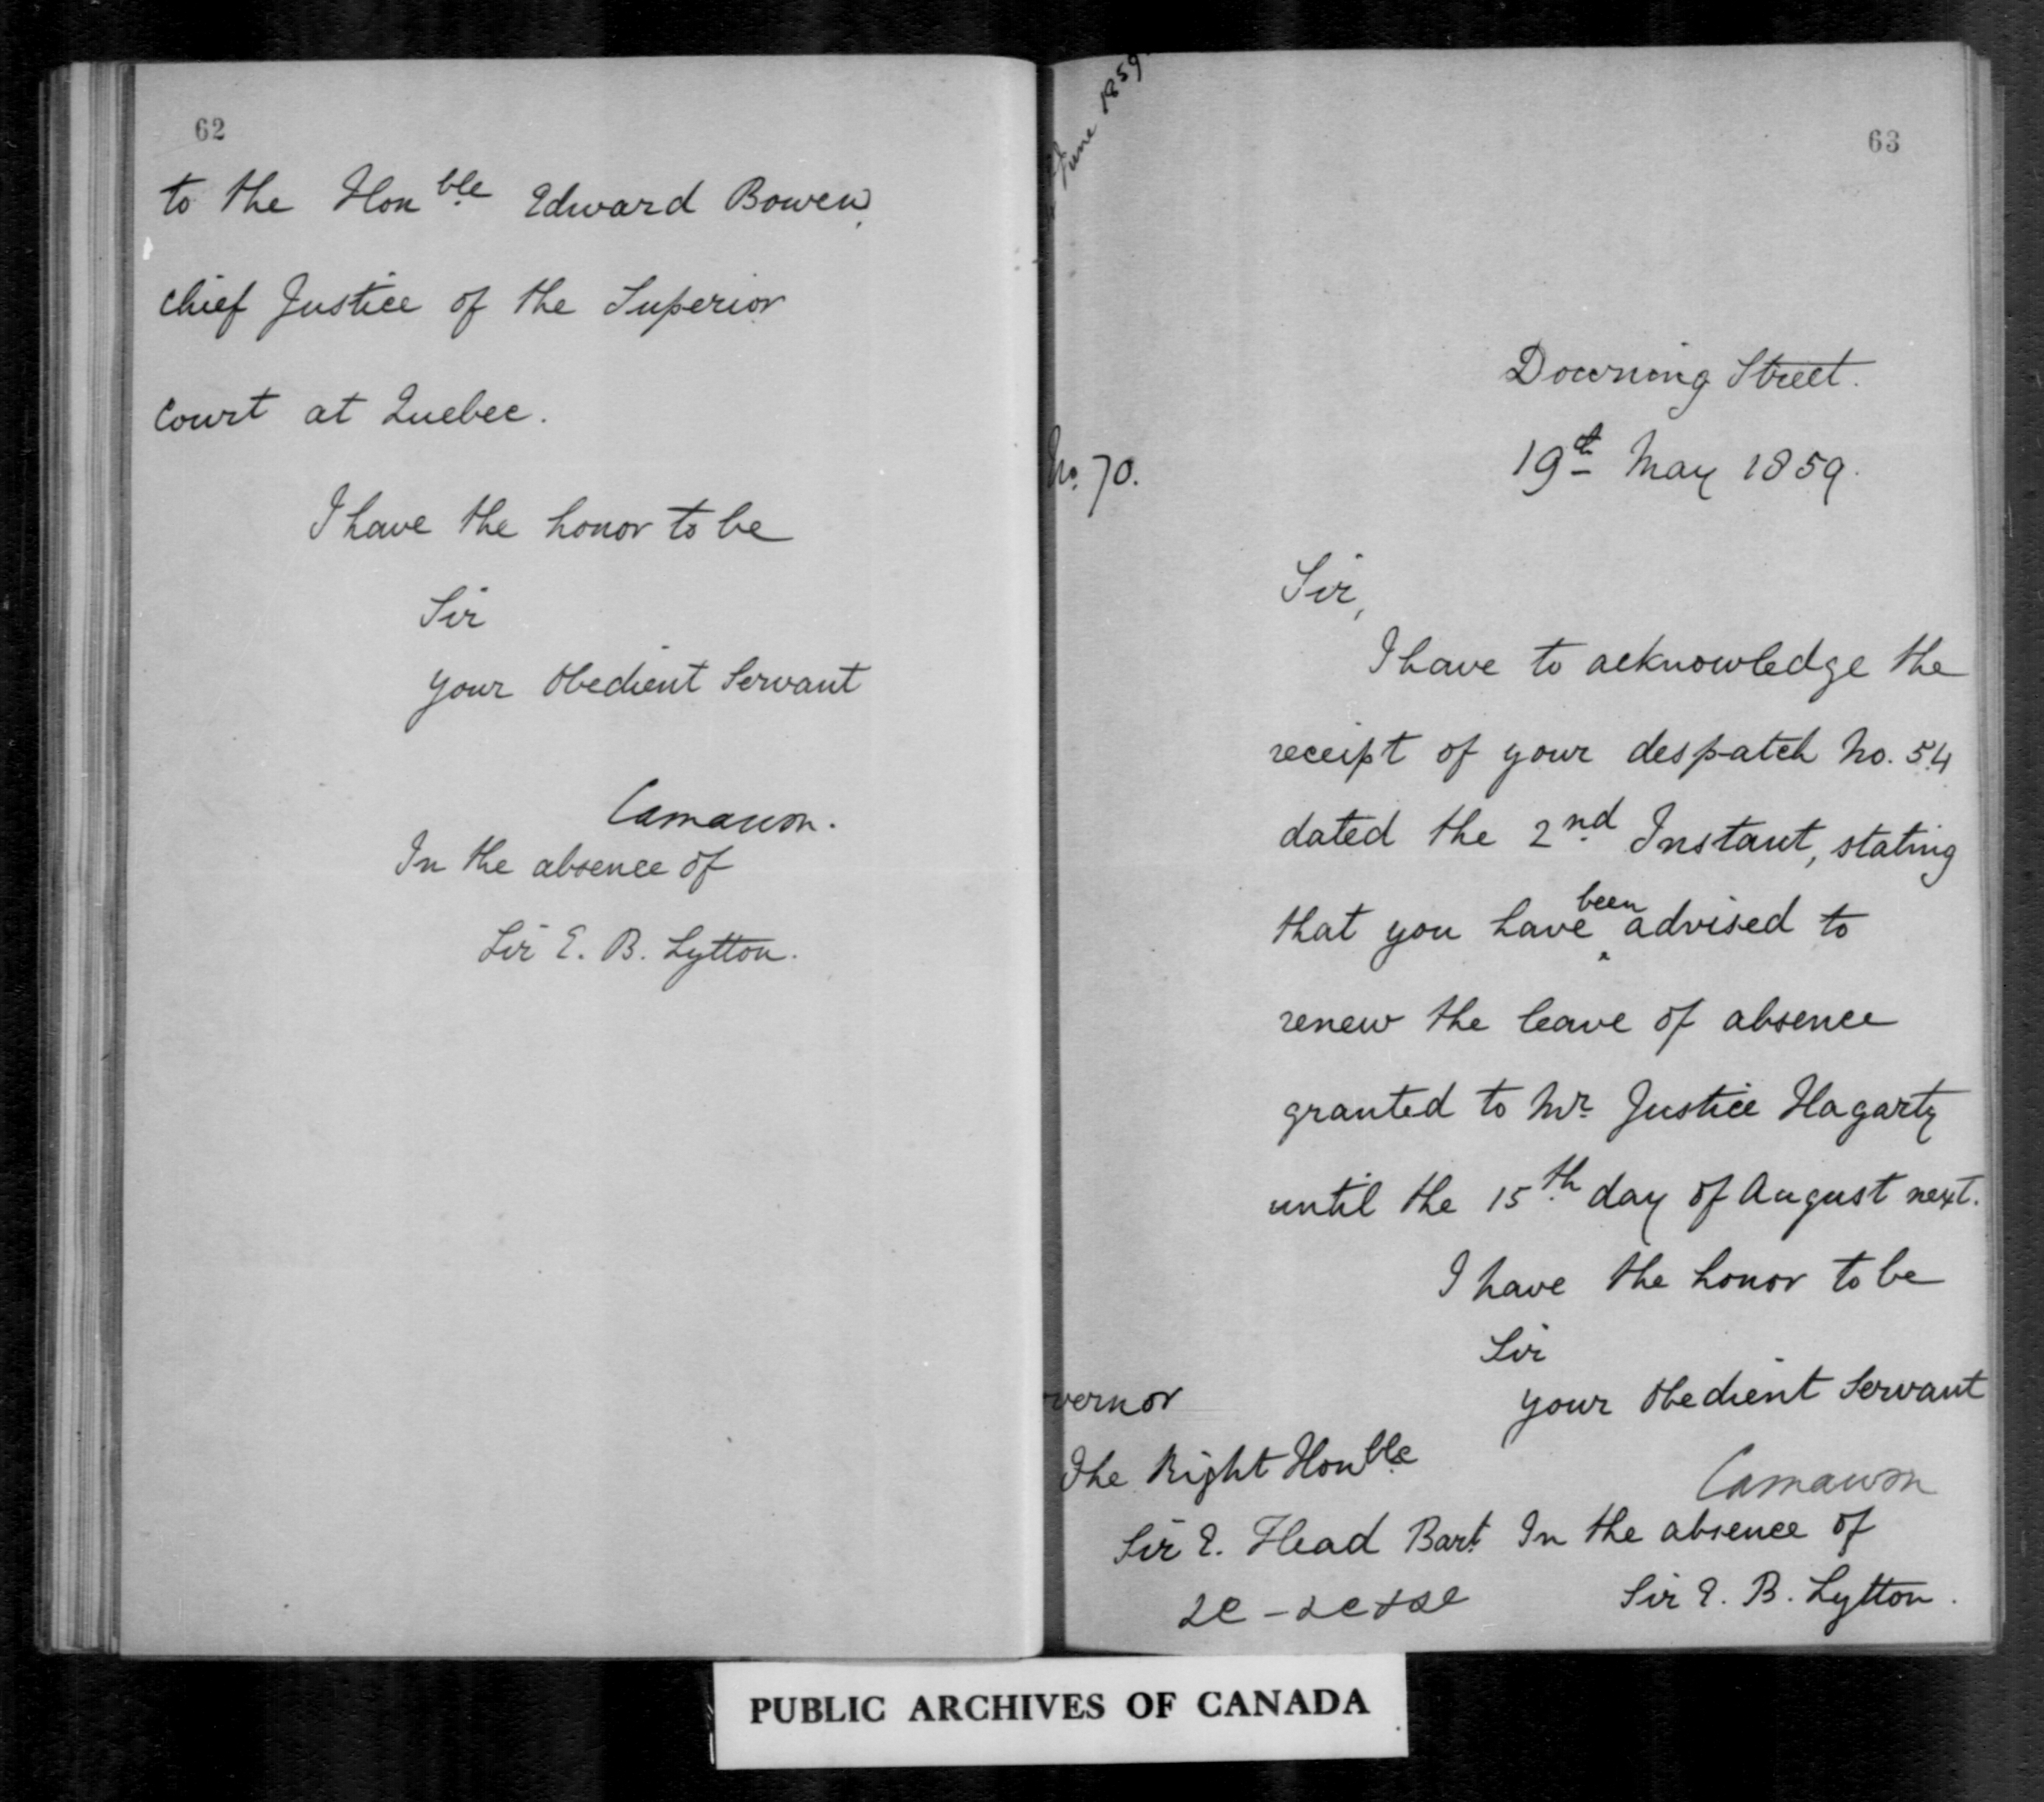 62
to the Honble Edward Bowen,
Chief Justice of the Superior
Court at Quebec.
I have the honor to be
Sir
your Obedient Servant
Carnarvon.
In the absence of
Sir E. B. Lytton.
63
June 1859
Downing Street.
No. 70.
19th May 1859.
Sir,
I have to acknowledge the
receipt of your despatch No. 54
dated the 2nd Instant, stating
that you have been advised to
renew the leave of absence
granted to Mr. Justice Hagarty
until the 15th day of August next.
I have the honor to be
Sir
your Obedient Servant
vernor
The Right Honble
Carnarvon
Sir E. Head Bart
In the absence of
Sir E. B. Lytton.
PUBLIC ARCHIVES OF CANADA